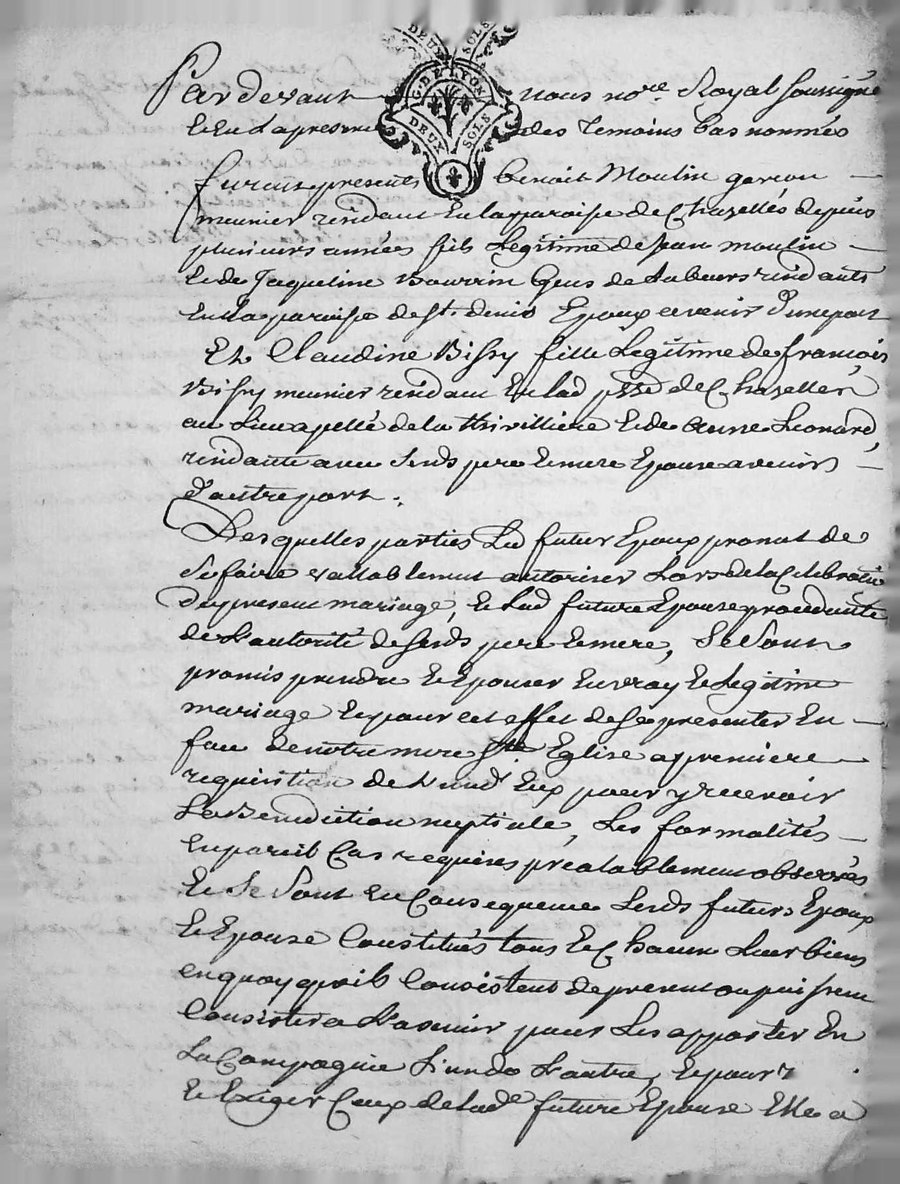 DEUX SOLS
G. DE LYON
DEUX SOLS
Pardevant nous no.re Royal soussigné
et en la presence des temoins bas nommés
furent presents benoit Moulin garcon
meunier residant en la paroisse de Chazelles depuis
plusieurs années fils Legitime de jean moulin
et de Jaqueline gens de Labeurs residants
en la paroisse de St. denis Epoux avenir d'une part
Et Claudine Bissy fille Legitime de francois
Bissy meunier residant en lad psse de Chazelles
au Lieu apellé de la Thivilliere et de anne Leonard
residante avec sesds pere et mere Epouse avenir
d'autre part.
Lesquelles parties Led futur Epoux promet de
se faire vallablement autoriser Lors de la Celebration
du present mariage, et Lad future Epouse procedante
de L'autorité de sesds pere et mere, se sont
promis prendre et Epouser en vray et Legitime
mariage et pour cet effet de se presenter En
face de notre mere Ste Eglise a premiere
requisition de L'un d'Eux pour y recevoir
La Benediction nuptiale, Les formalités
en pareil Cas requises prealablement observées
et se sont en Consequence Lesds futurs Epoux
et Epouse Constitués tous et Chacun Leur biens
en quoy qu'ils Consistent de present ou puissent
Consister a L'avenir pour Les apporter En
La Compagnie L'un de L'autre, et pour
et Exiger Ceux de Lade future Epouse Elle a